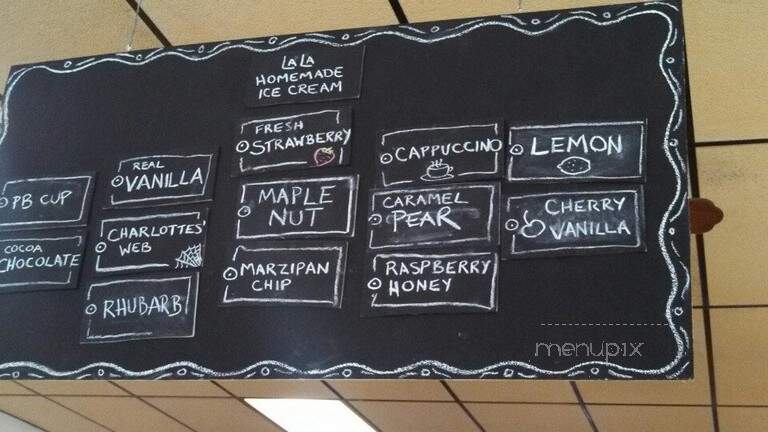 LALA
HOMEMADE
ICE CREAM
PB CUP
COCOA
CHOCOLATE
REAL
VANILLA
CHARLOTTES'
WEB
RHUBARB
FRESH
STRAWBERRY
MAPLE
NUT
MARZIPAN
CHIP
CAPPUCCINO
CARAMEL
PEAR
RASPBERRY
HONEY
LEMON
CHERRY
VANILLA
menupix